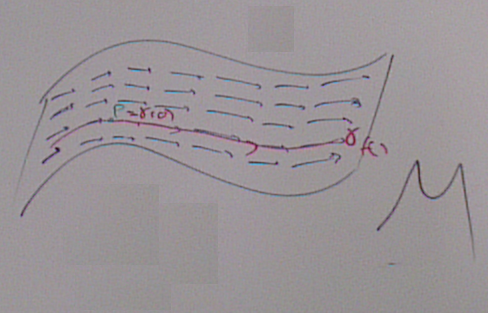 P=γ(0)
γ(t)
M